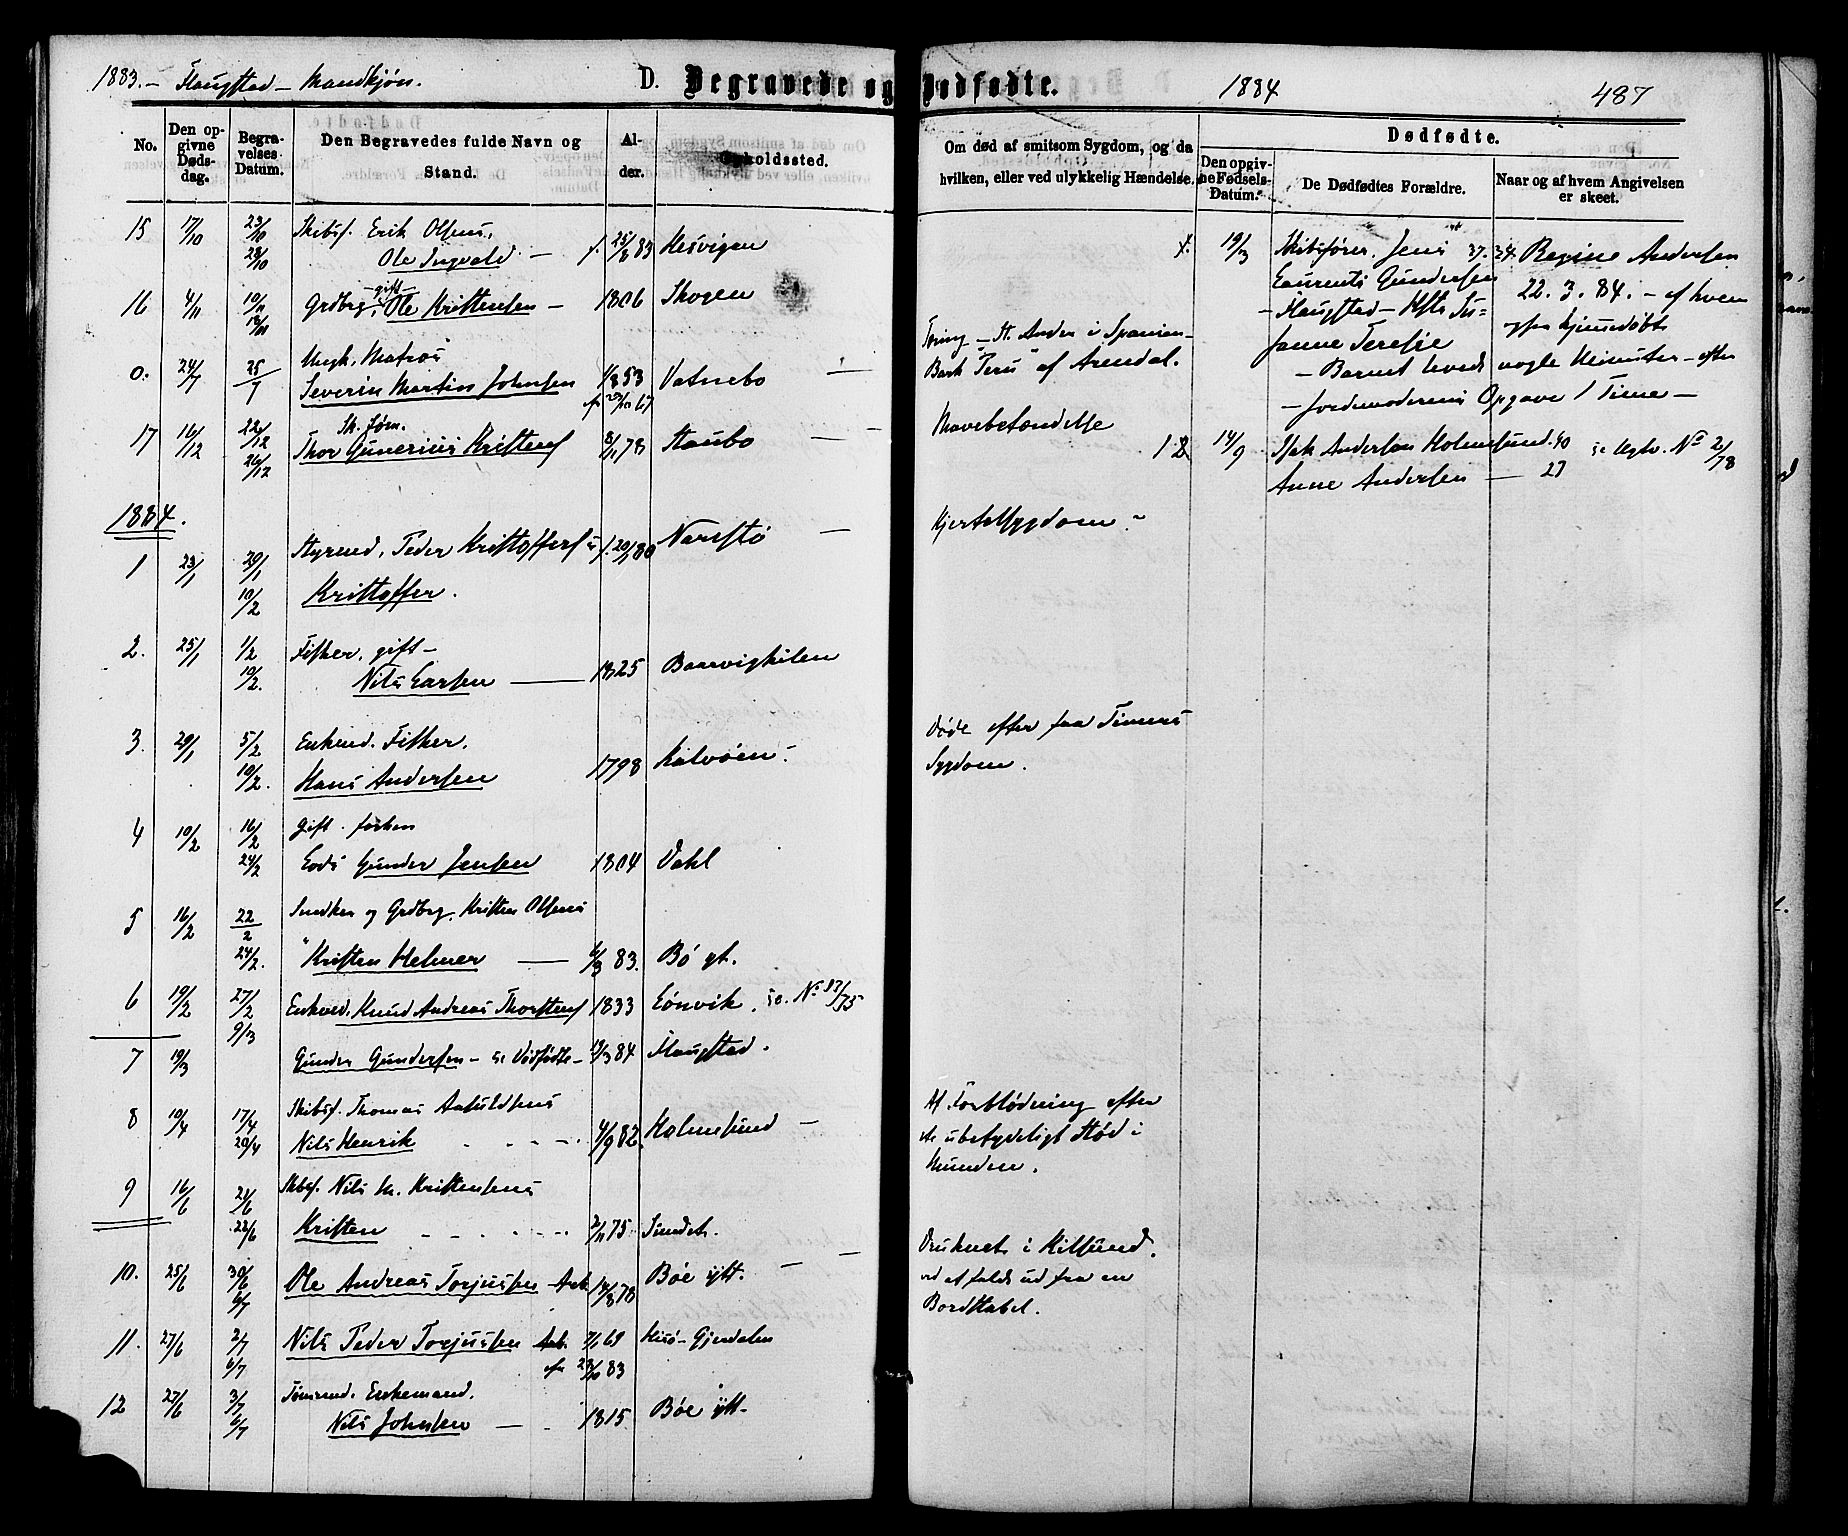 1883. – Flangstad – Mandkjøn.
D. Begravede og Dødfødte.
1884
487
No.
Den opgivne Dødsdag.
Begravelses Datum.
Den Begravedes fulde Navn og Stand.
Alder.
Opholdssted.
Om død af smitsom Sygdom, og da hvilken, eller ved ulykkelig Hændelse.
Dødfødte.
Den opgivne Fødsels-Datum.
De Dødfødtes Forældre.
Naar og af hvem Angivelsen er skeet.
15 17/10 23/10 Skibsf. Erik Olsens,
28/10 Ole Ingvald – f. 25/8 83 Kesvigen
16 4/11 10/11 Grdbrg. gift Ole Kristensen – 1806 Skogen
18/11
0. 24/7 25/7 Ungk. Matros
Severin Martin Johnsen 1/8 53 Vatnebo –
Bark "Peru" af Arendal.
17 16/12 22/12 Sk. Tøm.
26/12 Thor Gunerius Kristens 8/11 78 Staubo – –
Mavebetændelse
1884.
1 23/1 29/1 Styrmd. Peder Kristoffers f. 20/1 80 Narestø –
10/2 Kristoffer.
Hjertesygdom –
2. 25/1 1/2 Fisker, gift –
10/2. Nils Larsen – 1825 Baarvigkilen
3. 29/1 5/2 Enkmd. Fisker.
10/2. Hans Andersen 1798 Kalvøen –
Døde efter faa Timers
Sygdom.
4 10/2 16/2 Gift.
24/2 Lods Gunder Jensen 1804 Dahl
5 16/2 22/2 Snedker og Grdbrg. Kristen Olsens
24/2. Kristen Helmer – 6/3 83. Bö yt.
6 19/2 27/2 Enkmd. Knud Andreas Thorstens 1833 Lönvik. se. No 87/75
9/3
7 19/3 Gunder Gundersen – se Dødfødte – 19/3 84 Flangstad.
8 10/4 17/4 Skibsf. Thomas Anfuldsens
20/4 Nils Henrik 4/9 82. Holmesund –
Af Forblødning efter
et ubetydeligt Stød i
Munden.
9 16/6 21/6 Skibsf. Nils M. Kristensens
22/6 Kristen 2/11 75. Sundet.
10. 25/6 30/6 Ole Andreas Torjussen Arb. 14/8 78 Bøe ytt. –
6/7
Druknet i Kilsund.
ved at falde ud fra en
Bordstabel.
11. 27/6 2/7 Nils Peder Torjussen Arb. 7/1 69 Hisø – Gjendalen
6/7 28/10 83
12 27/6 3/7 Tømmd. Enkemand.
6/7 Nils Johnsen – 1815 Bøe ytt –
1. 19/3 Skibsfører Jens 37. 34. Regine Andersen
Laurents Gundersen 22. 3. 84. – af hvem
– Flangstad – Hst. Su= ogsaa hjemmedøbt
sanne Teresie nogle Minuter – efter
– Barnet levede
– Jordemoderens Opgave 1 Time –
2 14/9 Isak Andersen Holmesund. 40 se Ugtv. No 2/78
Anne Andersen – 27